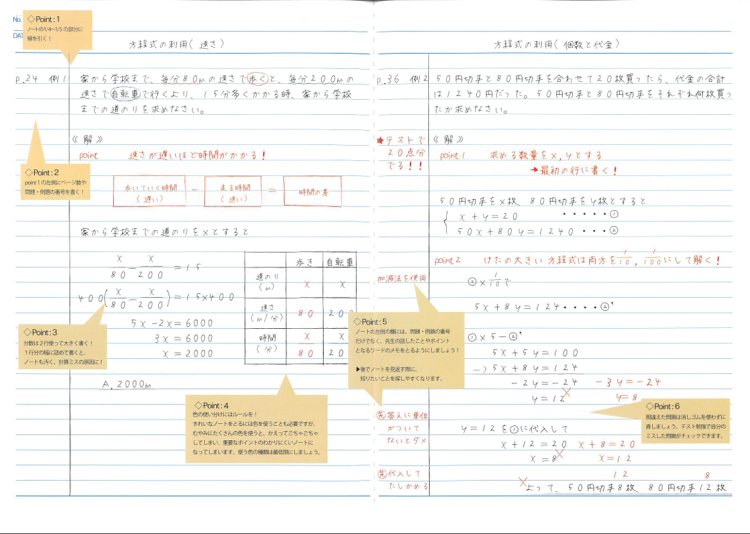 No.
◇Point:1
ノートの1/4~1/5の部分に
線を引く!
方程式の利用(速さ)
p.34 例1
家から学校まで、毎分80mの速さで歩くと、毎分200mの
速さで自転車で行くより、15分多くかかる時、家から学校
までの道のりを求めなさい。
◇Point:2
point1の左側にページ数や
問題・例題の番号を書く!
《解》
point 速さが遅いほど時間がかかる!
歩いていく時間
(遅い)
−
走る時間
(速い)
=
時間の差
家から学校までの道のりをxとすると
x/80 − x/200 = 15
400(x/80 − x/200) = 15×400
5x−2x=6000
3x=6000
x=2000
A. 2000m
歩き 自転車
道のり(m) x x
速さ(m/分) 80 200
時間(分) x/80 x/200
◇Point:3
分数は2行使って大きく書く!
1行分の幅に詰めて書くと、
ノートも汚く、計算ミスの原因に!
◇Point:4
色の使い分けにはルールを!
きれいなノートをとるには色を使うことも必要ですが、
むやみにたくさんの色を使うと、かえってごちゃごちゃ
してしまい、重要なポイントのわかりにくいノートに
なってしまいます。使う色の種類は最低限にしましょう。
方程式の利用(個数と代金)
p.36 例2
50円切手と80円切手を合わせて20枚買ったら、代金の合計
は1240円だった。50円切手と80円切手をそれぞれ何枚買っ
たか求めなさい。
★テストで
20点分
でる!!
《解》
point1 求める数量をx,yとする
→最初の行に書く!
50円切手をx枚、80円切手をy枚とすると
x+y=20 ・・・・・①
50x+80y=1240 ・・・②
point2 けたの大きい方程式は両方を1/10、1/100にして解く!
加減法を使用
②×1/10で
5x+8y=124・・・・②'
①×5−②'
5x+5y=100
−)5x+8y=124
−2y=−24 −3y=−24
y=12 × y=8
◇Point:5
ノートの左側の欄には、問題・例題の番号
だけでなく、先生の話したことやポイント
となるワードのメモをとるようにしましょう!
▶後でノートを見返す際に、
知りたいことを探しやすくなります。
◇Point:6
間違えた問題は消しゴムを使わずに
直しましょう。テスト勉強で自分の
ミスした問題がチェックできます。
答えに単位
がついて
ないとダメ
y=12を①に代入して
x+12=20 x+8=20
x=8 × x=12
代入して
たしかめる
12 8
×よって、50円切手8枚、80円切手12枚